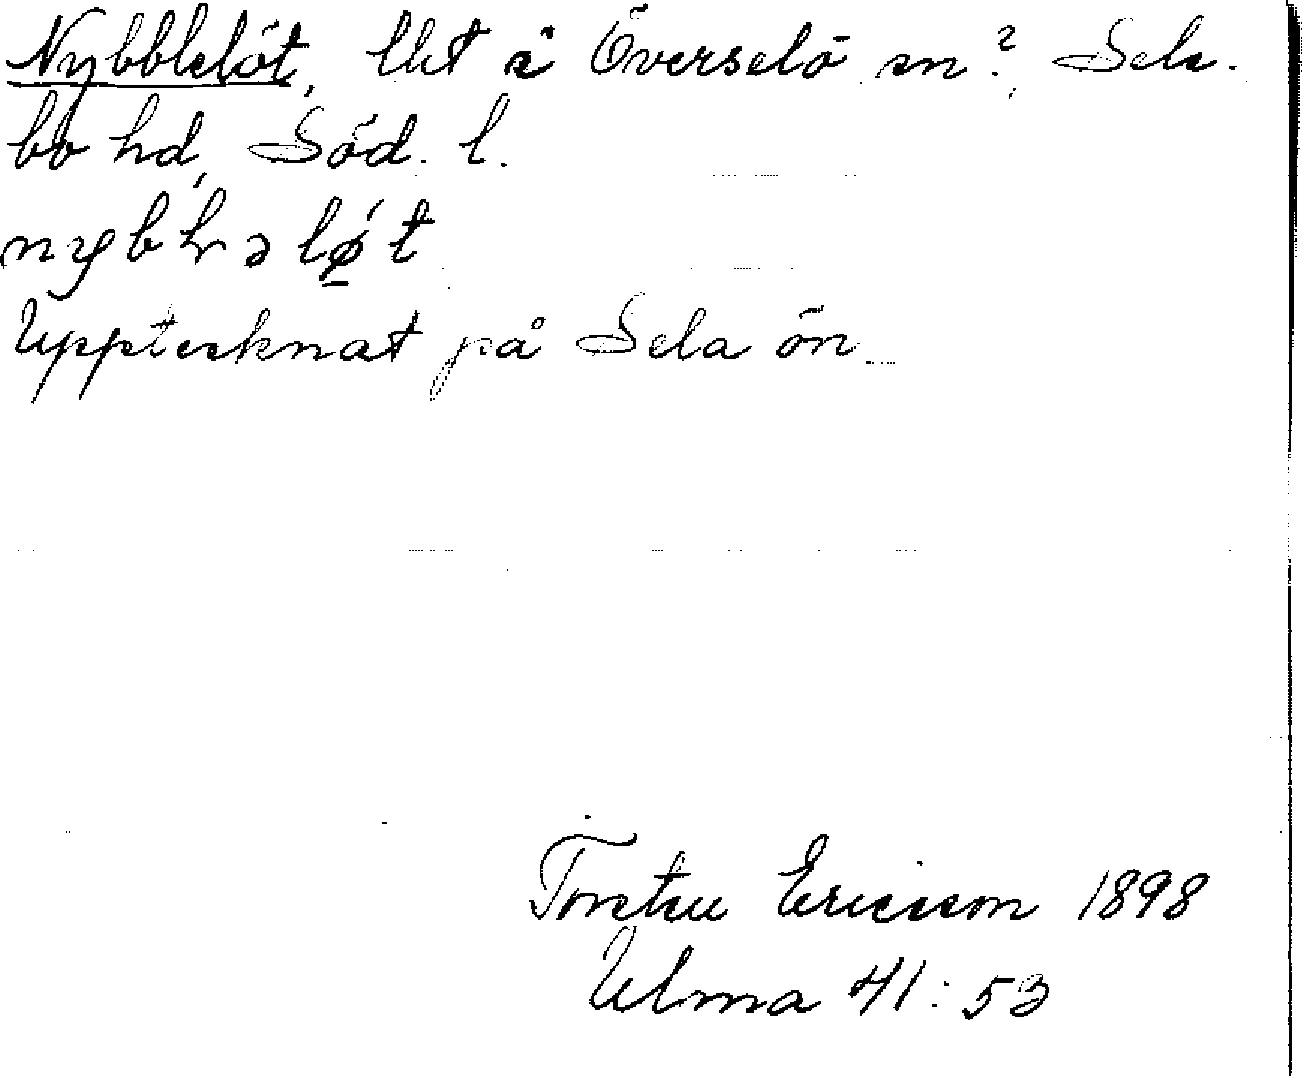 Nybblelöt, Ult i Överselö sn?, Sele-
bo hd, Söd. l.
Upptecknat på Sela ön
Torsten Ericsson 1898
Ulma 41:53